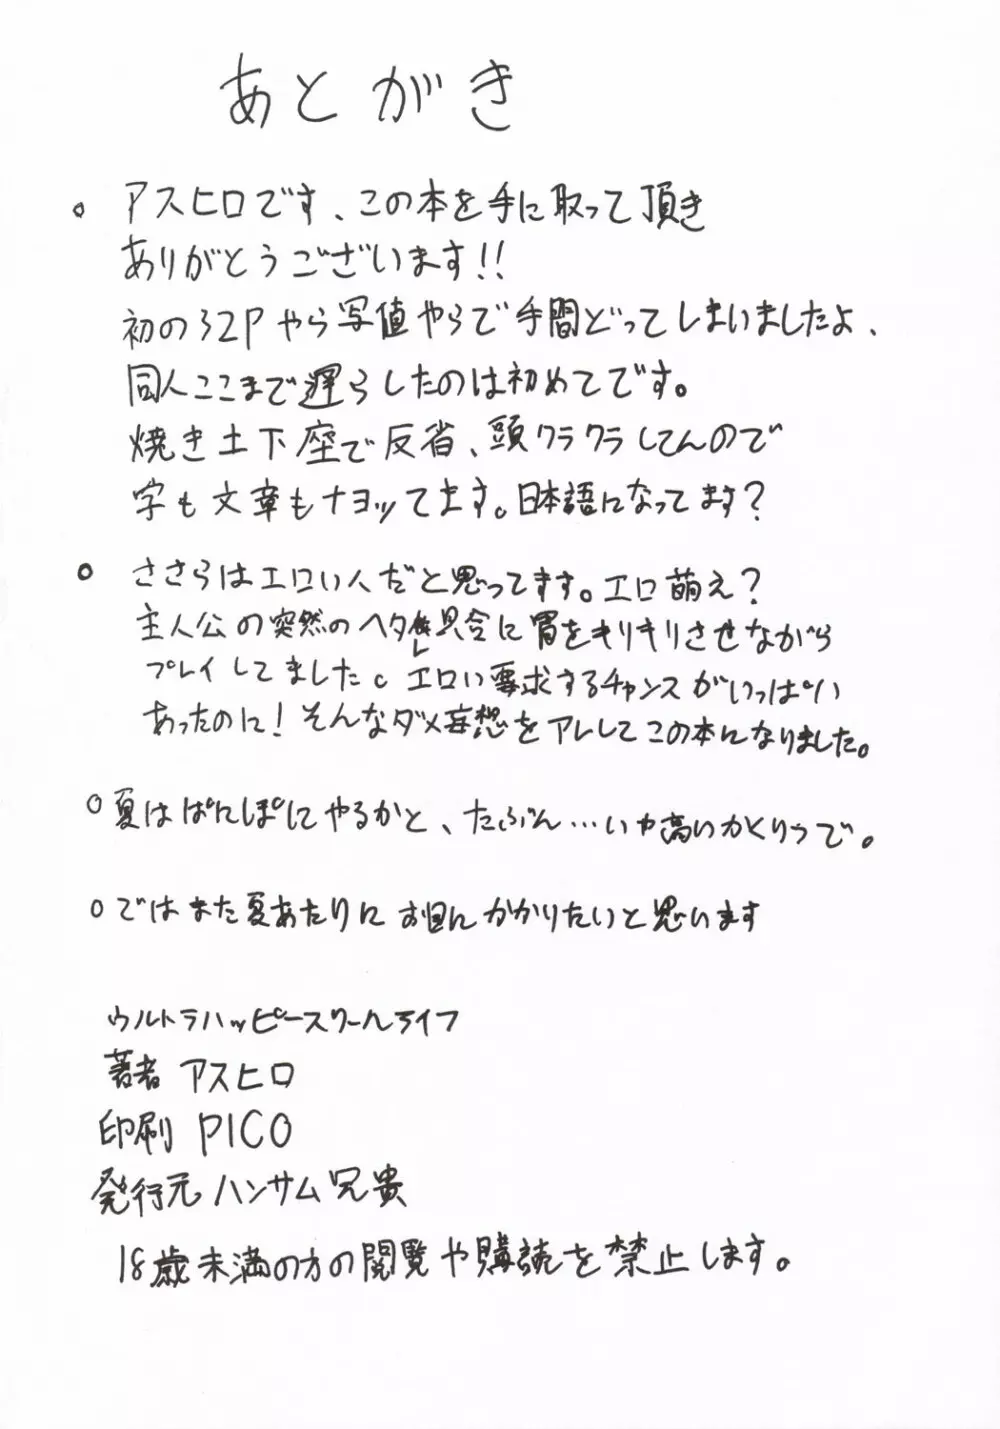 あとがき
。アスヒロです、この本を手に取って頂き
ありがとうございます!!
初の32Pやら写値やらで手間どってしまいましたよ、
同人ここまで遅らしたのは初めてです。
焼き土下座で反省、頭クラクラしてんので
字も文章もナヨッてます。日本語になってます?
。ささらはエロい人だと思ってます。エロ萌え?
主人公の突然のヘタレ具合に胃をキリキリさせながら
プレイしてました。エロい要求するチャンスがいっぱい
あったのに!そんなダメ妄想をアレしてこの本になりました。
○夏はぱにぽにやるかと、たぶん…いや高いかくりつで。
○ではまた夏あたりにお目にかかりたいと思います
ウルトラハッピースクールライフ
著者 アスヒロ
印刷 PICO
発行元 ハンサム兄貴
18歳未満の方の閲覧や購読を禁止します。